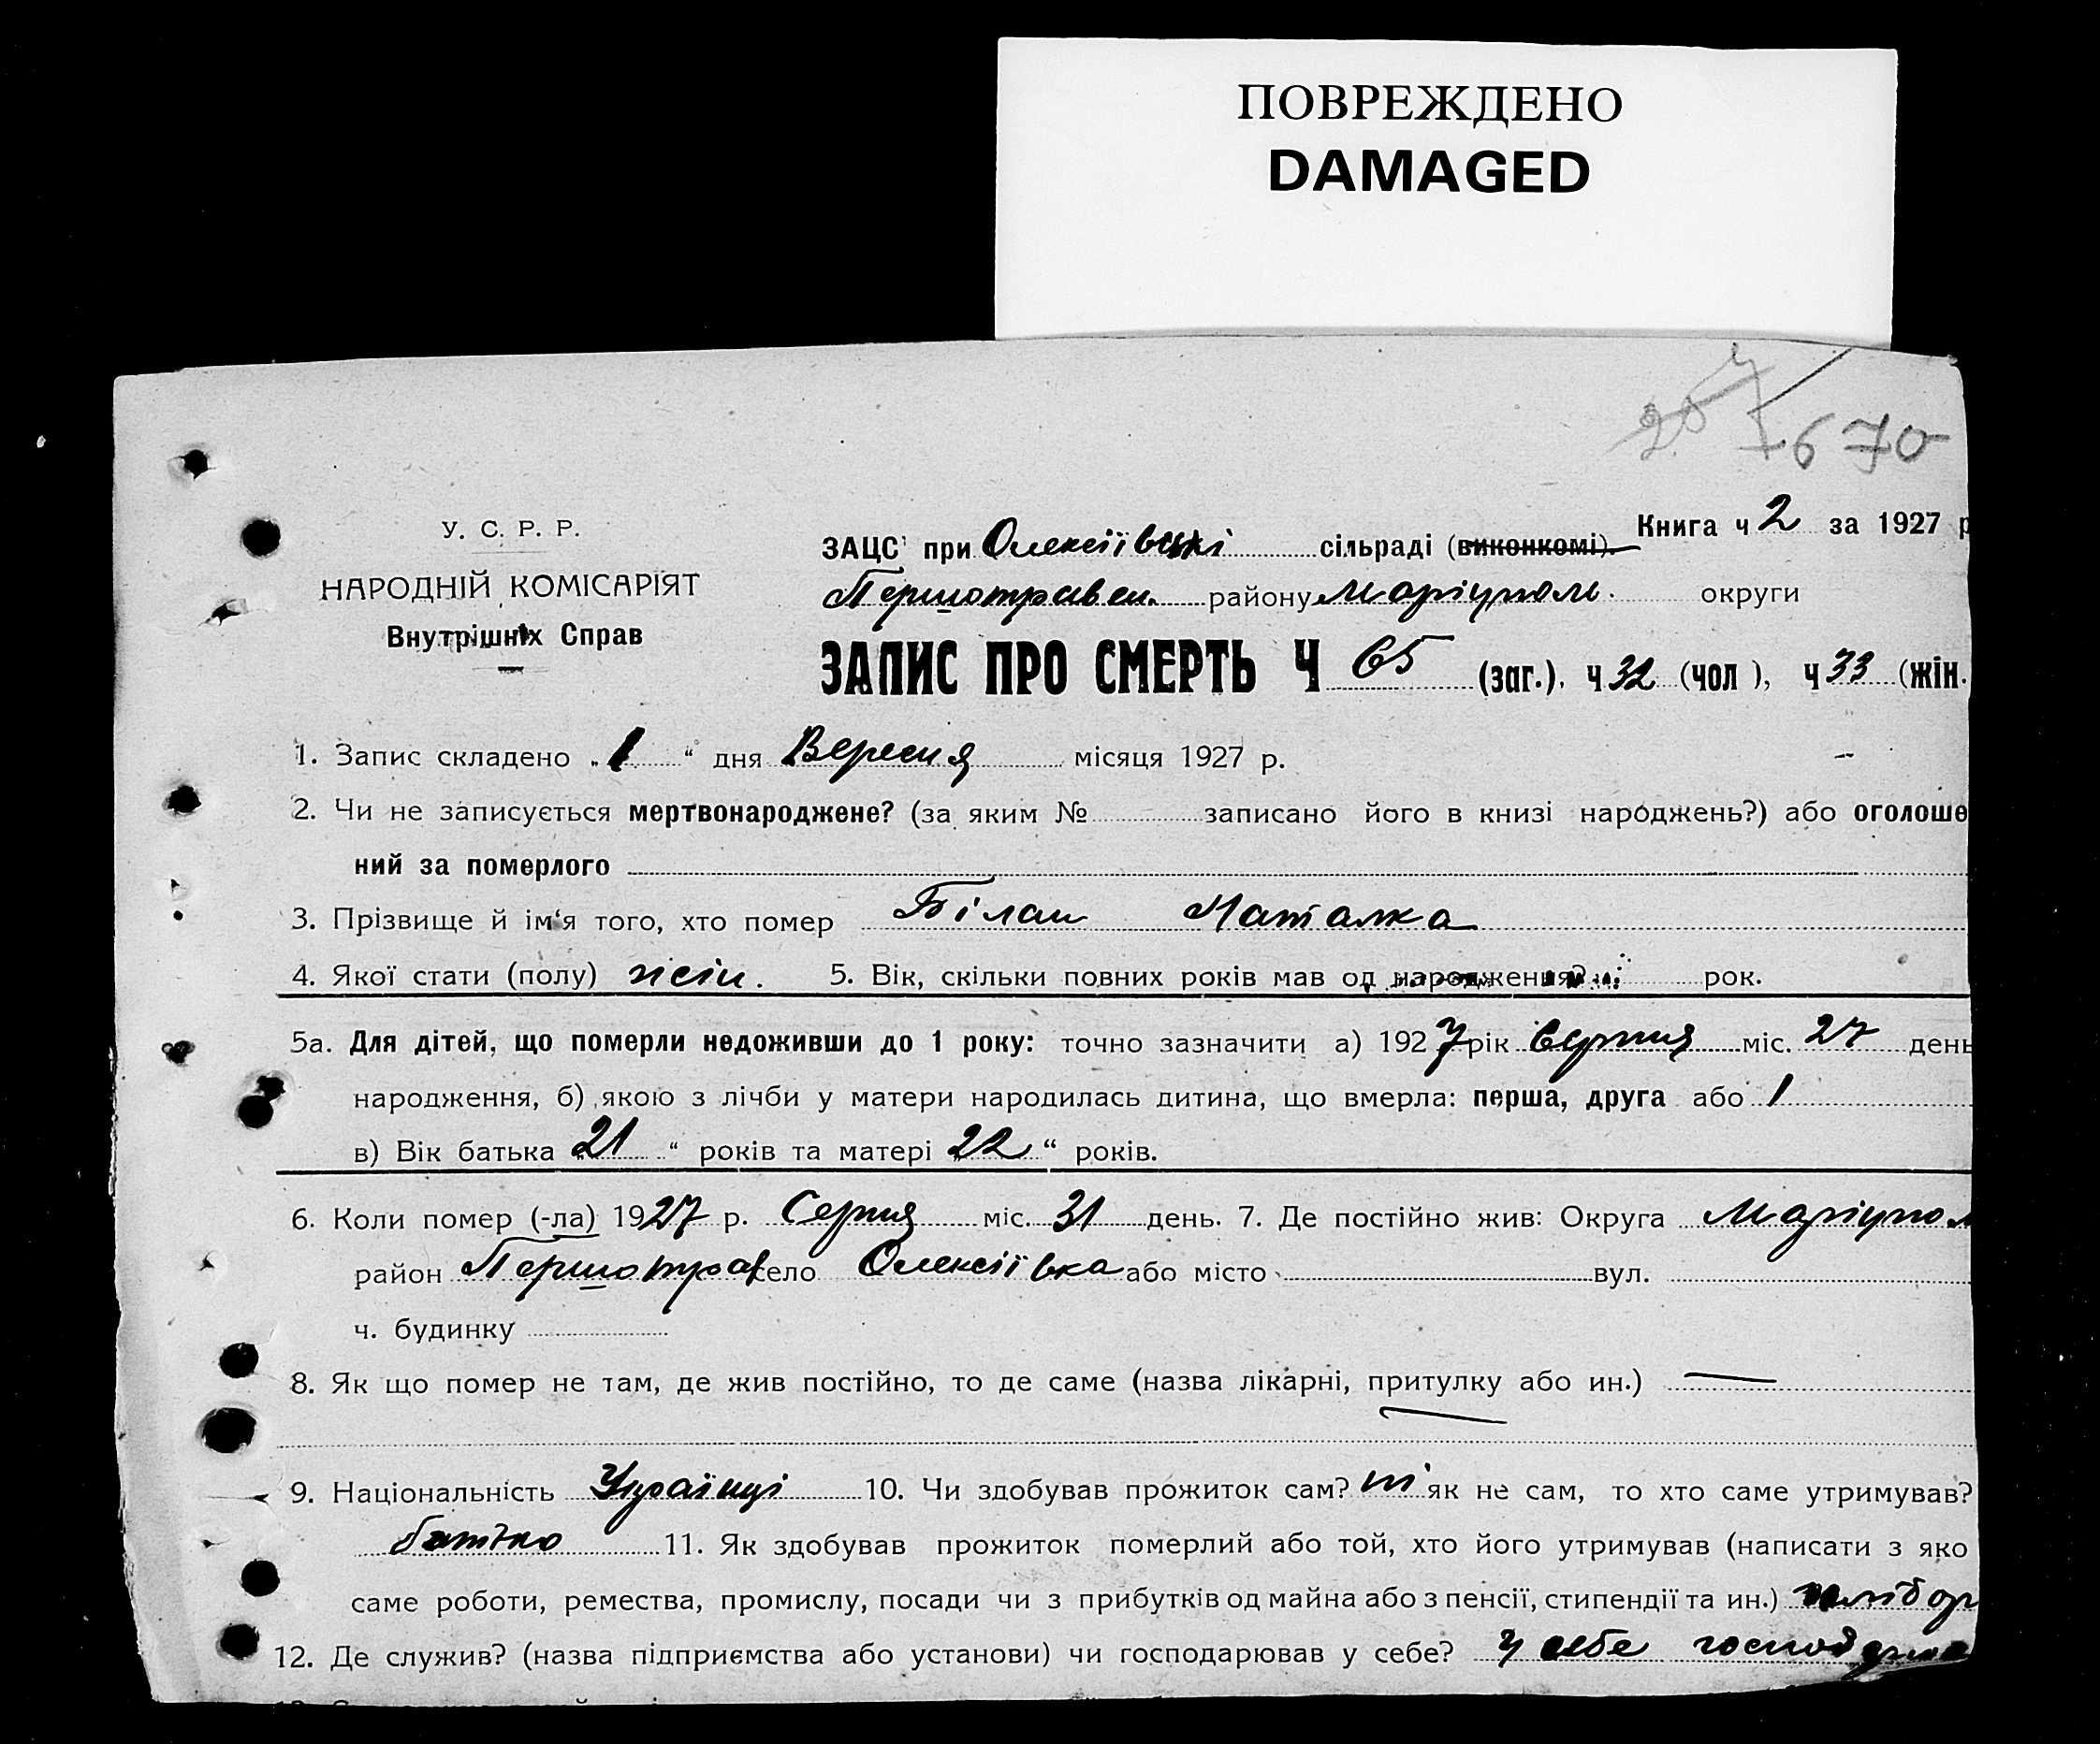 ПОВРЕЖДЕНО
DAMAGED
670
Книга ч 2 за 1927 р
У. С. Р. Р.
НАРОДНІЙ КОМІСАРІЯТ
Внутрішніх Справ
ЗАЦС при Олексіївські сільраді (виконкомі).
Першотравен. району Маріуполь. округи
ЗАПИС ПРО СМЕРТЬ Ч 65 (заг.). ч 32 (чол ), ч 33 (жін.
1. Запис складено „1“ дня Вересня місяця 1927 р.
2. Чи не записується мертвонароджене? (за яким № записано його в книзі народжень?) або оголоше
ний за померлого
3. Прізвище й ім‘я того, хто помер Білан Наталка
4. Якої стати (полу) жін. 5. Вік, скільки повних років мав од народження? рок.
5а. Для дітей, що померли недоживши до 1 року: точно зазначити а) 1927 рік серпня міс. 27 день
народження, б) якою з лічби у матери народилась дитина, що вмерла: перша, друга або 1
в) Вік батька „21“ років та матері „22“ років.
6. Коли помер (-ла) 1927 р. Серпня міс. 31 день. 7. Де постійно жив: Округа Маріупол
район Першотрав село Олексіївка або місто вул.
ч. будинку
8. Як що помер не там, де жив постійно, то де саме (назва лікарні, притулку або ин.) —
9. Національність Українці 10. Чи здобував прожиток сам? ні як не сам, то хто саме утримував?
батько 11. Як здобував прожиток померлий або той, хто його утримував (написати з яко
саме роботи, ремества, промислу, посади чи з прибутків од майна або з пенсії, стипендії та ин.) хлібор
12. Де служив? (назва підприємства або установи) чи господарював у себе? у себе господарює